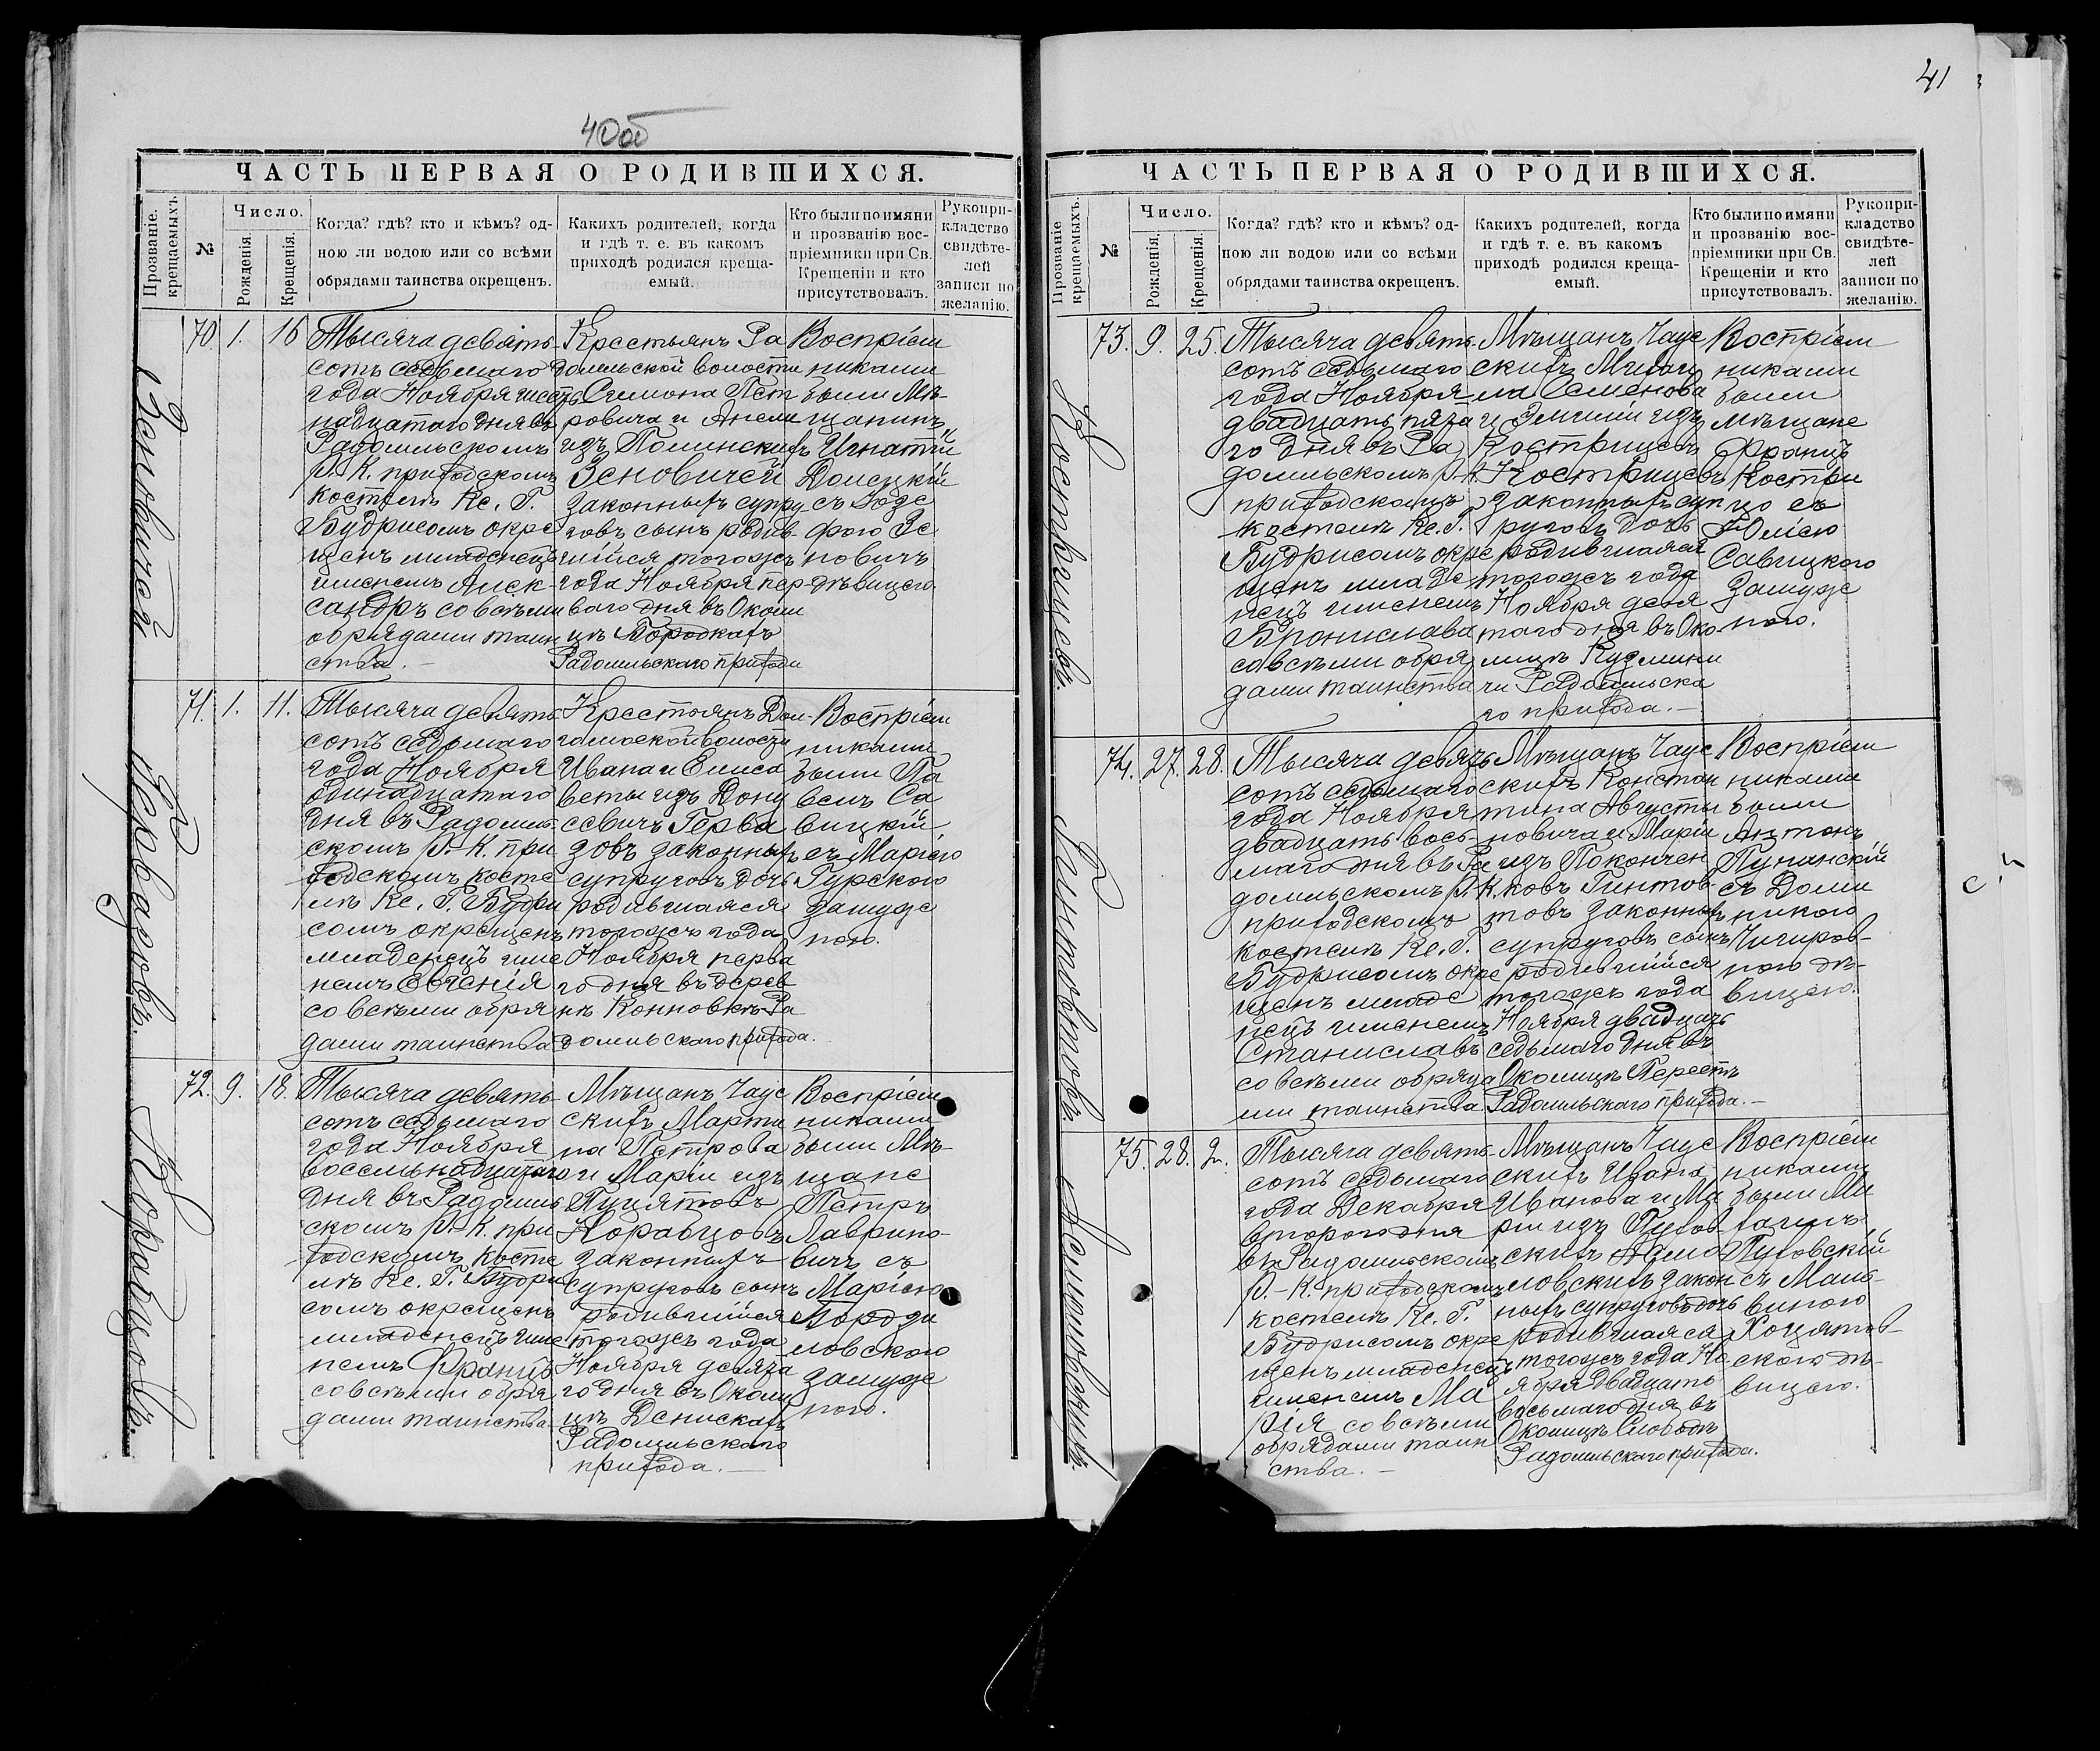 40об
ЧАСТЬ ПЕРВАЯ О РОДИВШИХСЯ.
Прозваніе крещаемыхъ.
№
Число.
Рожденія.
Крещенія.
Когда? гдѣ? кто и кѣмъ? од-
ною ли водою или со всѣми
обрядами таинства окрещенъ.
Какихъ родителей, когда
и гдѣ т. е. въ какомъ
приходѣ родился креща-
емый.
Кто были по имяни
и прозванію вос-
пріемники при Св.
Крещеніи и кто
присутствовалъ.
Рукопри-
кладство
свидѣте-
лей
записи по
желанію.
Зеновичей
70
1.
16
Тысяча девять-
сотъ седьмаго
года Ноября шест
надцатаго дня въ
Радомльскомъ
Р.-К. приходскомъ
костелѣ Кс. Г.
Будрисомъ окре
щенъ младенецъ
именемъ Алек-
сандръ со всѣми
обрядами таин
ства.-
Крестьянъ Ра
домльской волости
Симона Пет
ровича и Анели
изъ Полинскихъ
Зеновичей
законныхъ супру
говъ сынъ родив-
шійся тогожъ
года Ноября пер-
ваго дня въ Околи
цѣ Бородкахъ
Радомльскаго прихода
Воспріем
никами
были Мѣ-
щанинъ
Игнатій
Донецкій
съ Юзе
фою Зе
новичъ
дѣвицею.
Герваговъ.
71.
1.
11.
Тысяча девять-
сотъ седьмаго
года Ноября
одинадцатаго
дня въ Радомль-
скомъ Р.-К. при
ходскомъ косте
лѣ Кс. Г. Будри
сомъ окрещенъ
младенецъ име
немъ Евгенія
со всѣми обря
дами таинства
Крестьянъ Дол-
гомоской волости
Ивана и Елиса
веты изъ Дону
севичъ Герва
зовъ законныхъ
супруговъ дочь
родившаяся
тогожъ года
Ноября перва
го дня въ дерев
нѣ Конновкѣ Ра
домльскаго прихода.
Воспріем
никами
были Па
велъ Са
вицкій
съ Маріею
Гурскою
замуж
ною.
Норавцовъ.
72.
9.
18.
Тысяча девять-
сотъ седьмаго
года Ноября
восемьнадцатаго
дня въ Радомль
скомъ Р.-К. при
ходскомъ косте
лѣ Кс. Г. Будри
сомъ окрещенъ
младенецъ име
немъ Францъ
со всѣми обря
дами таинства.
Мѣщанъ Чаус
скихъ Марти
на Петрова
и Маріи изъ
Пунятовъ
Норавцовъ
законныхъ
супруговъ сынъ
родившійся
тогожъ года
Ноября девята
го дня въ Околи
цѣ Денискахъ
Радомльскаго
прихода.-
Воспріем
никами
были Мѣ-
щане
Петръ
Лаврино-
вичъ съ
Маріею
Бордзи
ловскою
замуж
ною.
41
ЧАСТЬ ПЕРВАЯ О РОДИВШИХСЯ.
Прозваніе крещаемыхъ.
№
Число.
Рожденія.
Крещенія.
Когда? гдѣ? кто и кѣмъ? од-
ною ли водою или со всѣми
обрядами таинства окрещенъ.
Какихъ родителей, когда
и гдѣ т. е. въ какомъ
приходѣ родился креща-
емый.
Кто были по имяни
и прозванію вос-
пріемники при Св.
Крещеніи и кто
присутствовалъ.
Рукопри-
кладство
свидѣте-
лей
записи по
желанію.
Кострицевъ.
73.
9.
25.
Тысяча девять-
сотъ седьмаго
года Ноября
двадцать пята
го дня въ Ра
домльскомъ Р.-К.
приходскомъ
костелѣ Кс. Г.
Будрисомъ окре
щенъ младе
нецъ именемъ
Бронислава
со всѣми обря
дами таинства
Мѣщанъ Чаус
скихъ Михаи
ла Семенова
и Эмиліи изъ
Кострицевъ
Кострицевъ
законныхъ суп
руговъ дочь
родившаяся
тогожъ года
Ноября девя
таго дня въ Око
лицѣ Кузмини
чи Радомльска
го прихода.-
Воспріем
никами
были
мѣщане
Францъ
Костри
цо съ
Юліею
Савицкого
замуж
ною.
Гинтовтовъ
74.
27.
28.
Тысяча девять
сотъ седьмаго
года Ноября
двадцать вось-
маго дня въ Ра
домльскомъ Р.-К.
приходскомъ
костелѣ Кс. Г.
Будрисомъ окре
щенъ младе
нецъ именемъ
Станиславъ
со всѣми обряда
ми таинства
Мѣщанъ Чаус
скихъ Констан
тина Августы
новича и Маріи
изъ Покончен
ковъ Гинтов-
товъ законныхъ
супруговъ сынъ
родившійся
тогожъ года
Ноября двадцать
седьмаго дня въ
Околицѣ Перестъ
Радомльскаго прихода.-
Воспріем
никами
были
Антонъ
Пунанскій
съ Доми
никою
Чигиров-
ною дѣ-
вицею.
75.
28.
2.
Тысяча девять-
сотъ седьмаго
года Декабря
второго дня
въ Радомльскомъ
Р.-К. приходскомъ
костелѣ Кс. Г.
Будрисомъ окре
щенъ младенецъ
именемъ Ма
рія со всѣми
обрядами таин
ства.-
Мѣщанъ Чаус
скихъ Ивана
Иванова и Ма
ріи изъ Пухов
скихъ
ловскихъ закон
ныхъ супруговъ дочь
родившаяся
тогожъ года Но
ября двадцать
восьмаго дня въ
Околицѣ Слободѣ
Радомльскаго прихода.
Воспріем
никами
были Ми
хаилъ
Пуховскій
съ Маль-
виною
Хоцятов-
скою дѣ-
вицею.